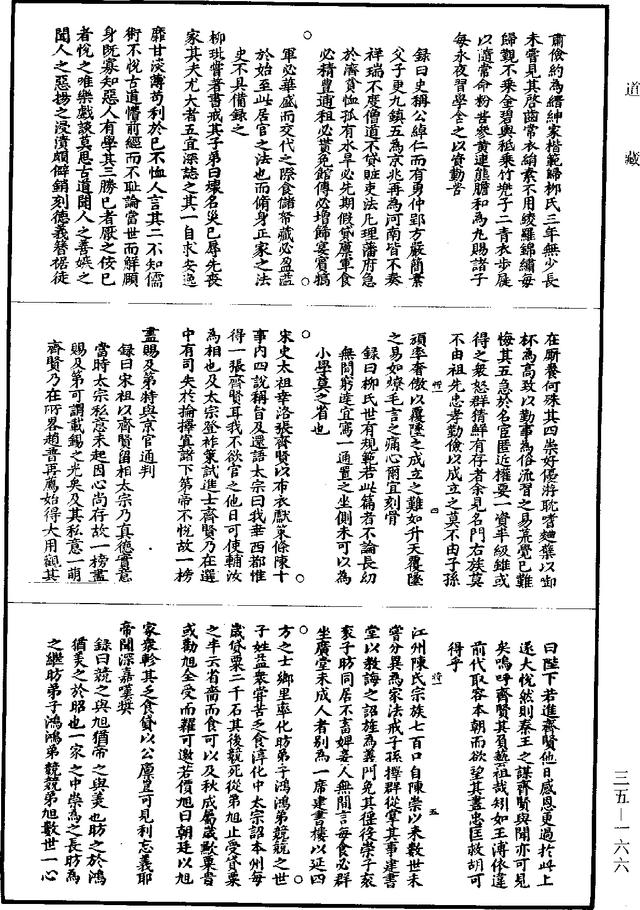 道藏
肅儉約為縉紳家楷範歸柳氏三年無少長
未嘗見其啓齒常衣絹素不用綾羅錦繡每
歸覲不乘金碧輿秪乘竹兜子二青衣步屣
以隨常命粉苦參黄連龍膽和為丸賜諸子
每永夜習學含之以資勤苦
録曰史稱公綽仁而有勇仲郢方嚴簡素
父子更九鎮五為京兆再為河南皆不奏
祥瑞不度僧道不貸賍吏法凡理藩府急
於濟貧恤孤有水旱必先期假貸廪軍食
必精豊逋租必貰免館傳必增飾宴賓犒
軍必華盛而交代之際食儲帑藏必盈溢
於始至此居官之法也而脩身正家之法
史不具備録之
柳玭嘗著書戒其子弟曰壞名災己辱先喪
家其失尤大者五宜深誌之其一自求安逸
靡甘淡薄苟利於己不恤人言其二不知儒
術不悅古道懵前經而不耻論當世而解頤
身既寡知惡人有學其三勝己者厭之佞己
者悅之唯樂戲談莫思古道聞人之善嫉之
聞人之惡揚之浸漬頗僻銷刻德義簪裾徒
在厮養何殊其四崇好優游耽嗜麹糵以銜
杯為高致以勤事為俗流習之易荒覺已難
悔其五急於名宦匿近權要一資半級雖或
得之衆怒群猜鮮有存者余見名門右族莫
不由祖先忠孝勤儉以成立之莫不由子孫
四
頑率奢傲以覆墜之成立之難如升天覆墜
之易如燎毛言之痛心爾宜刻骨
録曰柳氏世有規範若此篇者不論長幼
無間窮達宜寫一通置之坐側未可以為
小學莫之省也
宋史太祖幸洛張齊賢以布衣獻策條陳十
事内四說稱旨及還語太宗曰我幸西都惟
得一張齊賢耳我不欲官之他日可使輔汝
為相也及太宗登祚策試進士齊賢乃在選
中有司失於掄擇寘諸下第帝不悅故一榜
盡賜及第特與京官通判
録曰宋祖以齊賢留相太宗乃真德實意
當時太宗私意未起因心尚存故一榜盡
賜及第可謂載錫之光矣及其私意一萌
齊賢乃在所畧趙普再薦始得大用觀其
曰陛下若進齊賢他日感恩更過於此上
遂大悅然則秦王之謀齊賢與聞亦可見
矣嗚呼齊賢其負藝祖哉矧如王溥依違
前代取容本朝而欲望其盡忠匡救胡可
得乎
五
江州陳氏宗族七百口自陳崇以來數世未
嘗分異為家法戒子孫擇群從掌其事建書
堂以教誨之詔旌為義門免其徭役崇子衮
衮子昉同居不畜婢妾人無間言每食必群
坐廣堂未成人者别為一席建書樓以延四
方之士鄉里率化昉弟子鴻鴻弟兢兢之世
子姓益衆常苦乏食淳化中太宗詔本州每
歲貸粟二千石其後兢死從弟旭止受貸粟
之半云省嗇而食可以及秋成屬歲歉粟貴
或勸旭全受而糶可邀善價旭曰朝廷以旭
家衆軫其乏食貸以公廪豈可見利忘義耶
帝聞深嘉嘆奬
録曰兢之與旭猶帝之與美也昉之於鴻
猶美之於昭也一家之中崇為之長昉為
之繼昉弟子鴻鴻弟兢兢弟旭數世一心
三五—一六六